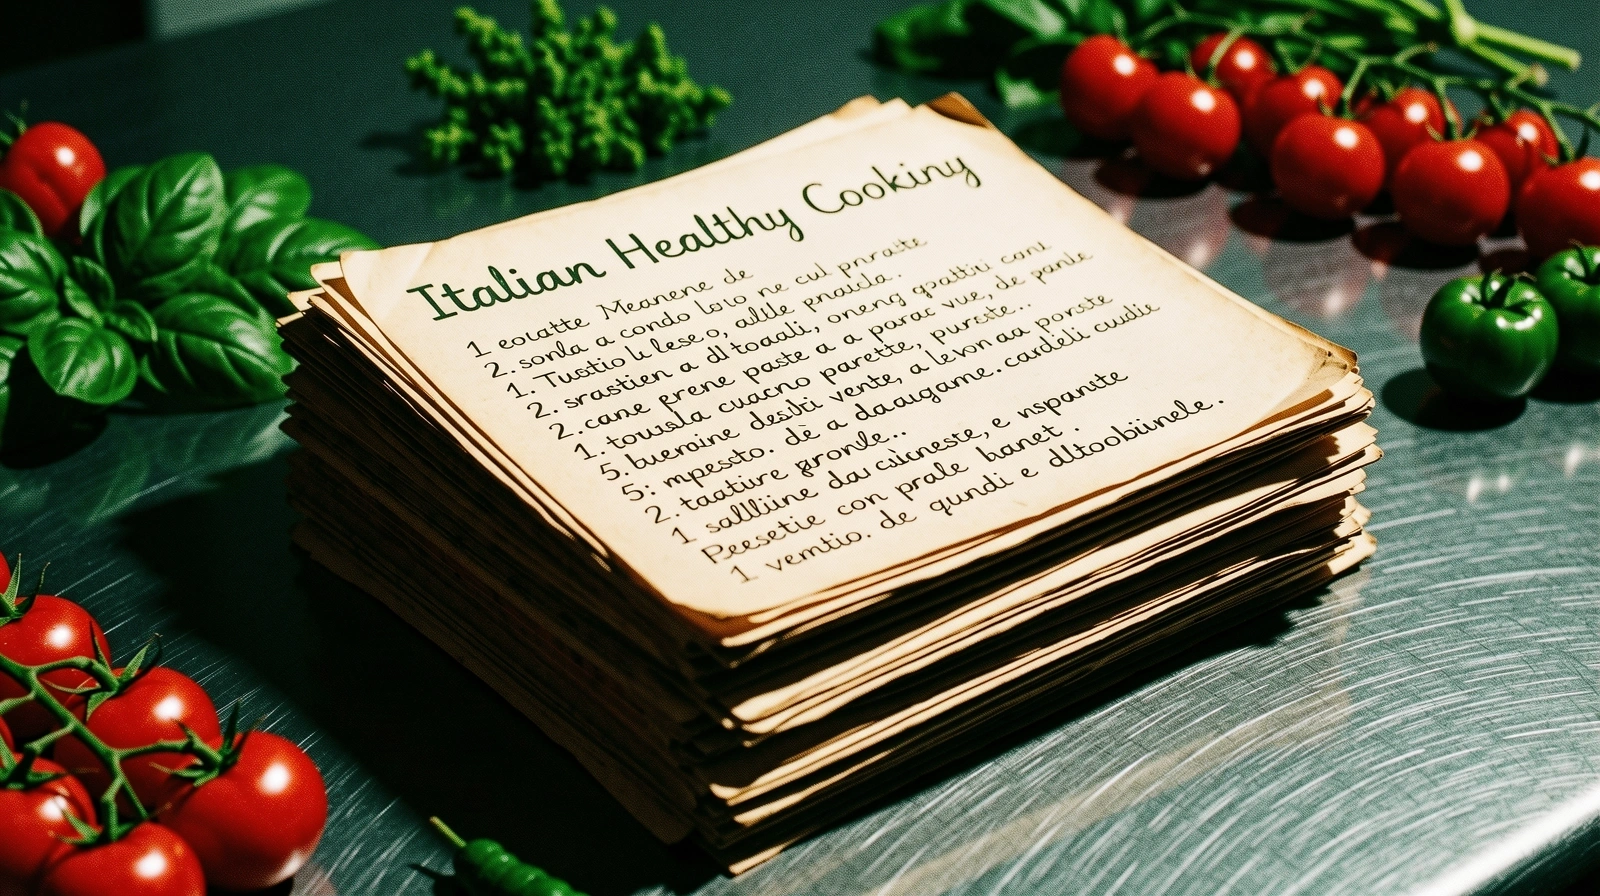 Italian Healthy Cookiny
1 eouatte Meanene de
2. sonla a condo loio ne cul pnraite
1. Tustio li lese o, allle pnaida.
2. srastien a dll toaali, oneng gpattiu cani
2. cane prene paste a a parac vue, de panle
1. towsla cuacno parette, purste..
5. buermine desilti vente, a levon aaa ponste
5: mpessto. dè a daaugame. cardeli cuudie
2. taature gronile..
1 sallliine dau cuicneste, e nspanite
Peesetie con prale banet.
1 vemtio. de qundi e dltoobiinele.